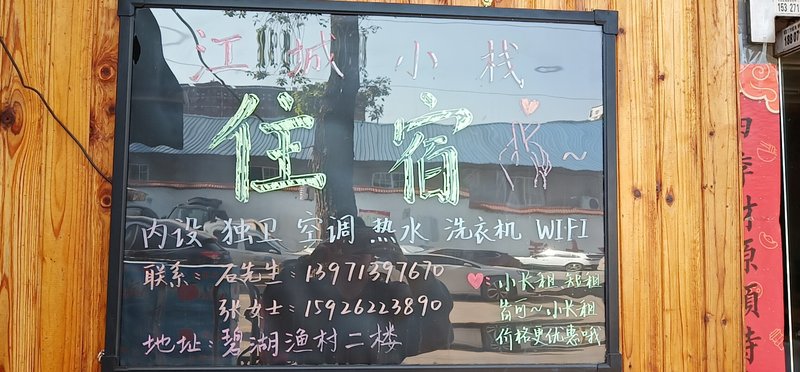 江城小栈
住宿
内设 独卫 空调 热水 洗衣机 WIFI
联系: 石先生: 13971397670
张女士: 15926223890
地址: 碧湖渔村二楼
: 小长租 短租
皆可~小长租
价格更优惠哦
季财源顺時
153 271